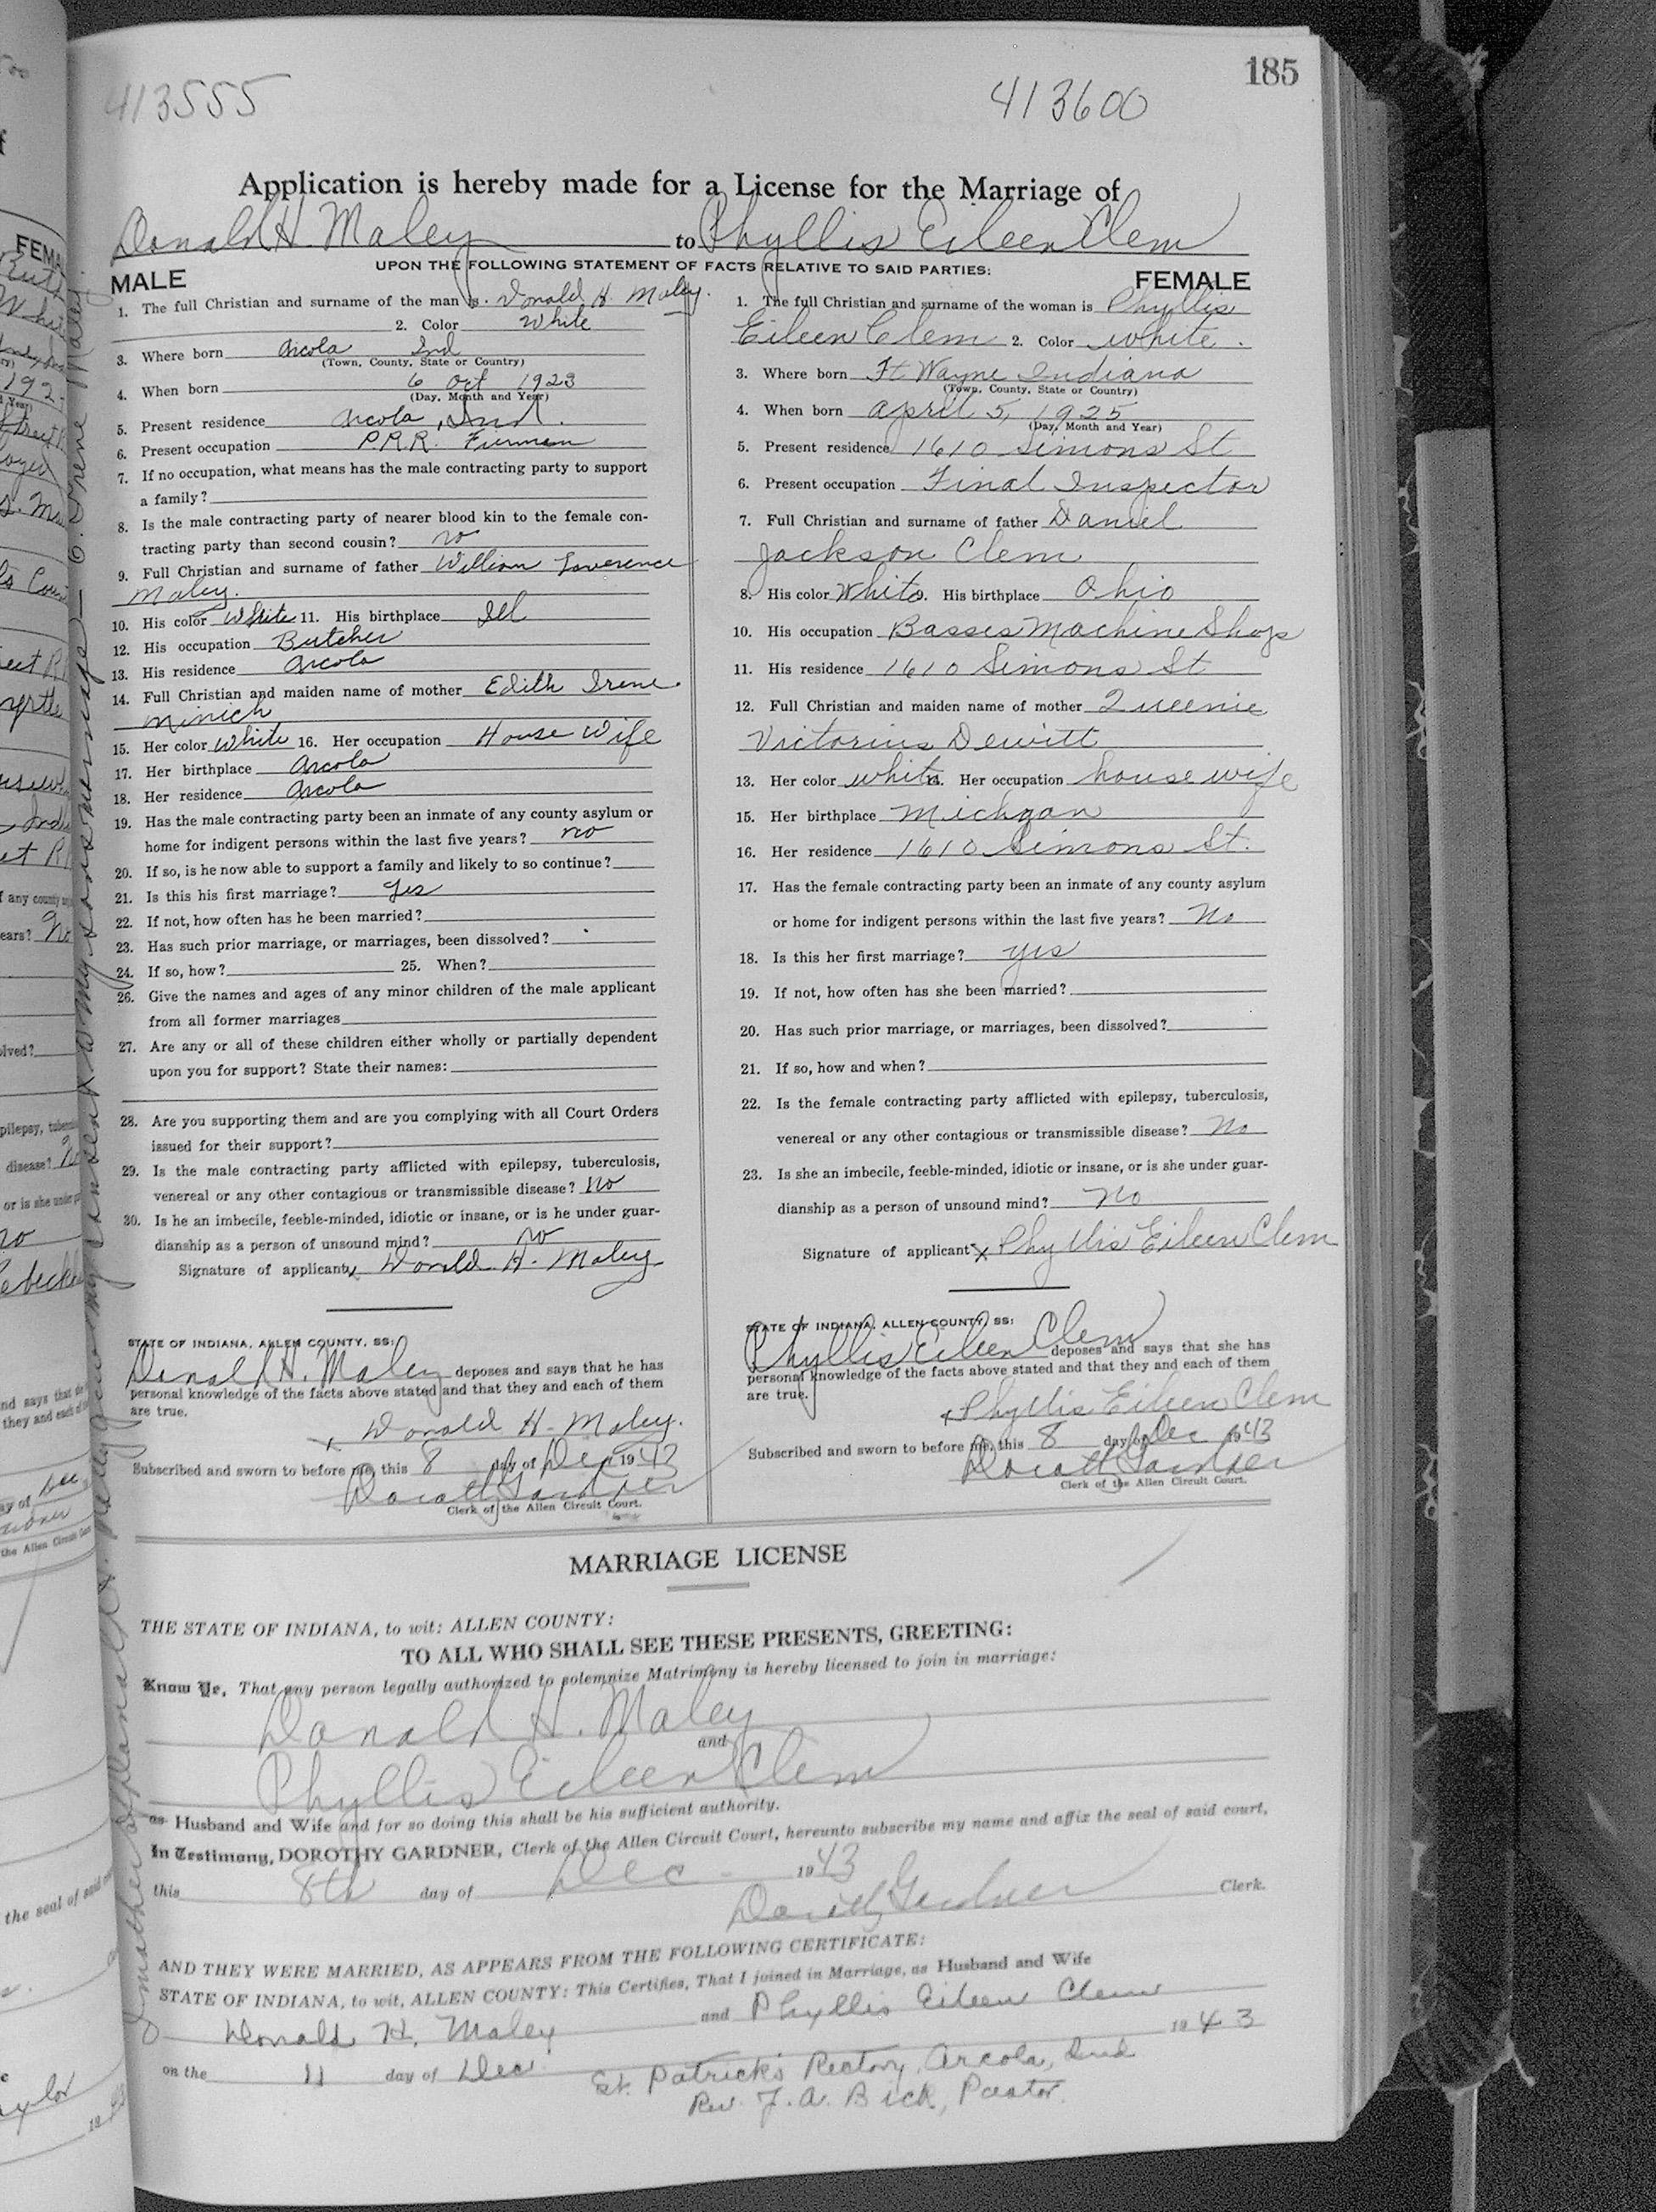 185
413555
413600
Application is hereby made for a License for the Marriage of
Donald H. Maley to Phyllis Eileen Clem
UPON THE FOLLOWING STATEMENT OF FACTS RELATIVE TO SAID PARTIES:
MALE
1. The full Christian and surname of the man is Donald H. Maley.
2. Color White
3. Where born Arcola Ind
(Town, County, State or Country)
4. When born 6 Oct 1923
(Day, Month and Year)
5. Present residence Arcola, Ind.
6. Present occupation P.R.R. Fireman
7. If no occupation, what means has the male contracting party to support
a family?
8. Is the male contracting party of nearer blood kin to the female con-
tracting party than second cousin? no
9. Full Christian and surname of father William Laverence
Maley.
10. His color White 11. His birthplace Ill
12. His occupation Butcher
13. His residence Arcola
14. Full Christian and maiden name of mother Edith Irene
Minich
15. Her color White 16. Her occupation House Wife
17. Her birthplace Arcola
18. Her residence Arcola
19. Has the male contracting party been an inmate of any county asylum or
home for indigent persons within the last five years? no
20. If so, is he now able to support a family and likely to so continue?
21. Is this his first marriage? Yes
22. If not, how often has he been married?
23. Has such prior marriage, or marriages, been dissolved?
24. If so, how? 25. When?
26. Give the names and ages of any minor children of the male applicant
from all former marriages
27. Are any or all of these children either wholly or partially dependent
upon you for support? State their names:
28. Are you supporting them and are you complying with all Court Orders
issued for their support?
29. Is the male contracting party afflicted with epilepsy, tuberculosis,
venereal or any other contagious or transmissible disease? No
30. Is he an imbecile, feeble-minded, idiotic or insane, or is he under guar-
dianship as a person of unsound mind? no
Signature of applicant x Donald H. Maley
STATE OF INDIANA, ALLEN COUNTY, SS:
Donald H. Maley deposes and says that he has
personal knowledge of the facts above stated and that they and each of them
are true.
x Donald H. Maley.
Subscribed and sworn to before me, this 8 day of Dec 1943
Dorothy Gardner
Clerk of the Allen Circuit Court.
FEMALE
1. The full Christian and surname of the woman is Phyllis
Eileen Clem 2. Color white.
3. Where born Ft Wayne Indiana
(Town, County, State or Country)
4. When born April 5, 1925
(Day, Month and Year)
5. Present residence 1610 Simons St
6. Present occupation Final Inspector
7. Full Christian and surname of father Daniel
Jackson Clem
8. His color White 9. His birthplace Ohio
10. His occupation Basses Machine Shop
11. His residence 1610 Simons St
12. Full Christian and maiden name of mother Queenie
Victorius Dewitt
13. Her color white 14. Her occupation housewife
15. Her birthplace Michgan
16. Her residence 1610 Simons St.
17. Has the female contracting party been an inmate of any county asylum
or home for indigent persons within the last five years? No
18. Is this her first marriage? yes
19. If not, how often has she been married?
20. Has such prior marriage, or marriages, been dissolved?
21. If so, how and when?
22. Is the female contracting party afflicted with epilepsy, tuberculosis,
venereal or any other contagious or transmissible disease? No
23. Is she an imbecile, feeble-minded, idiotic or insane, or is she under guar-
dianship as a person of unsound mind? No
Signature of applicant x Phyllis Eileen Clem
STATE OF INDIANA, ALLEN COUNTY, SS:
Phyllis Eileen Clem deposes and says that she has
personal knowledge of the facts above stated and that they and each of them
are true.
x Phyllis Eileen Clem
Subscribed and sworn to before me, this 8 day of Dec 1943
Dorothy Gardner
Clerk of the Allen Circuit Court.
MARRIAGE LICENSE
THE STATE OF INDIANA, to wit: ALLEN COUNTY:
TO ALL WHO SHALL SEE THESE PRESENTS, GREETING:
Know Ye, That any person legally authorized to solemnize Matrimony is hereby licensed to join in marriage:
Donald H. Maley
and
Phyllis Eileen Clem
as Husband and Wife and for so doing this shall be his sufficient authority.
In Testimony, DOROTHY GARDNER, Clerk of the Allen Circuit Court, hereunto subscribe my name and affix the seal of said court,
this 8th day of Dec 1943
Dorothy Gardner Clerk.
AND THEY WERE MARRIED, AS APPEARS FROM THE FOLLOWING CERTIFICATE:
STATE OF INDIANA, to wit, ALLEN COUNTY: This Certifies, That I joined in Marriage, as Husband and Wife
Donald H. Maley and Phyllis Eileen Clem
on the 11 day of Dec. 1943
St. Patrick's Rectory, Arcola, Ind
Rev. J. A. Bick, Pastor.